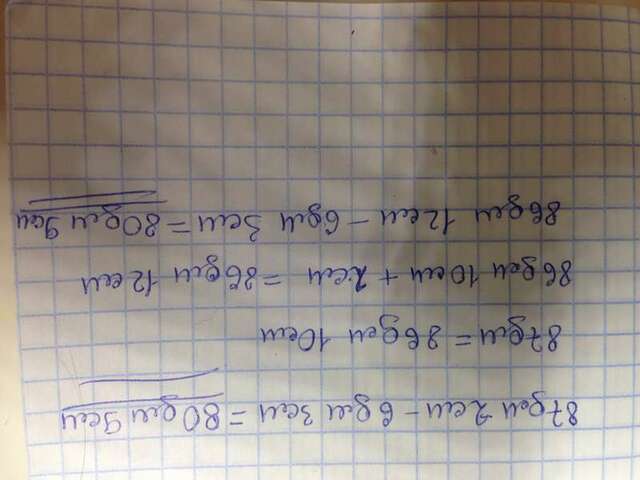 87дм 2см - 6дм 3см = 80дм 9см
87дм = 86дм 10см
86дм 10см + 2см = 86дм 12см
86дм 12см - 6дм 3см = 80дм 9см